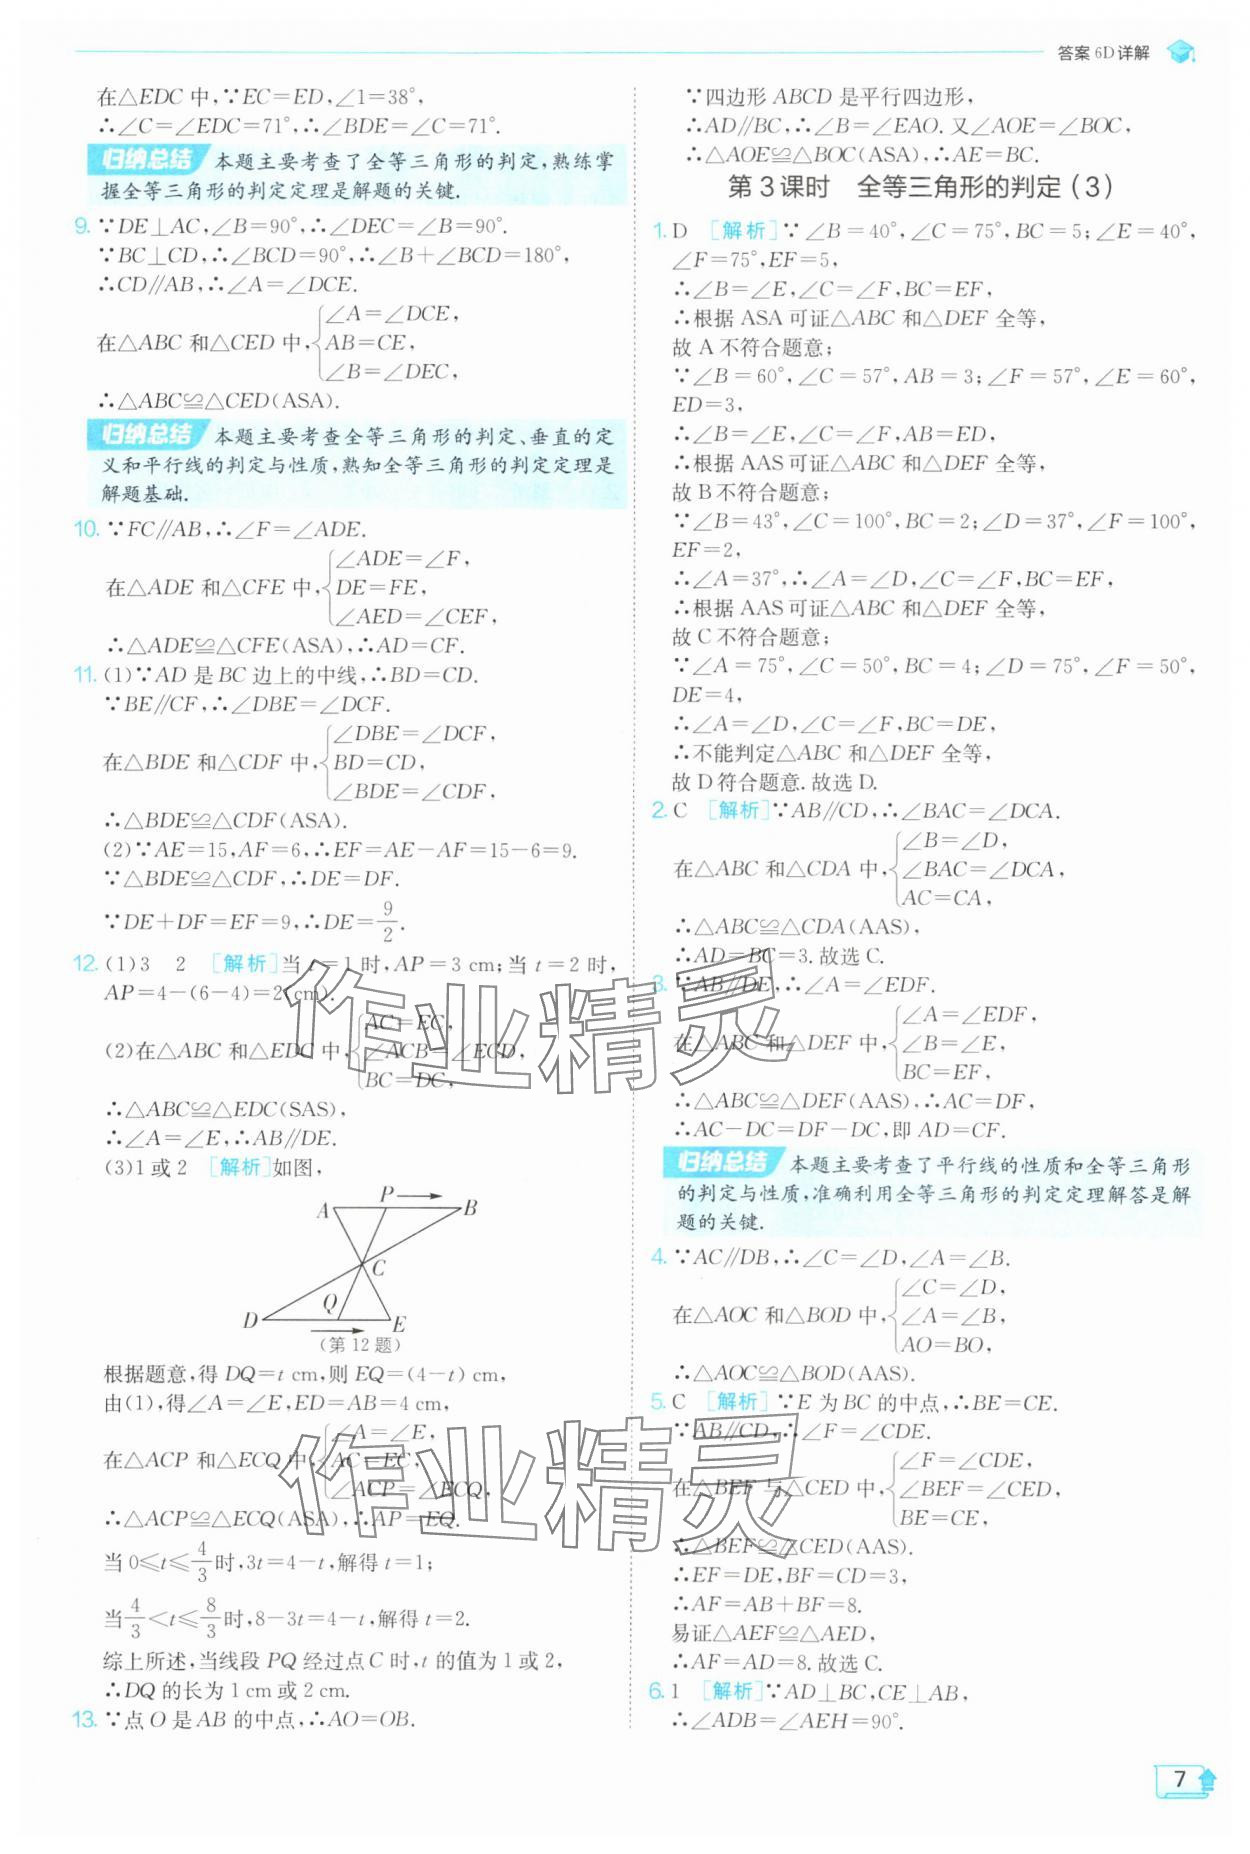 答案 6D详解
在△EDC 中,∵EC=ED,∠1=38°,
∴∠C=∠EDC=71°,∴∠BDE=∠C=71°.
归纳总结 本题主要考查了全等三角形的判定,熟练掌
握全等三角形的判定定理是解题的关键.
9. ∵DE⊥AC,∠B=90°,∴∠DEC=∠B=90°.
∵BC⊥CD,∴∠BCD=90°,∴∠B+∠BCD=180°,
∴CD∥AB,∴∠A=∠DCE.
在△ABC 和△CED 中,{∠A=∠DCE,
AB=CE,
∠B=∠DEC,
∴△ABC≌△CED(ASA).
归纳总结 本题主要考查全等三角形的判定、垂直的定
义和平行线的判定与性质,熟知全等三角形的判定定理是
解题基础.
10. ∵FC∥AB,∴∠F=∠ADE.
在△ADE 和△CFE 中,{∠ADE=∠F,
DE=FE,
∠AED=∠CEF,
∴△ADE≌△CFE(ASA),∴AD=CF.
11. (1)∵AD 是 BC 边上的中线,∴BD=CD.
∵BE∥CF,∴∠DBE=∠DCF.
在△BDE 和△CDF 中,{∠DBE=∠DCF,
BD=CD,
∠BDE=∠CDF,
∴△BDE≌△CDF(ASA).
(2)∵AE=15,AF=6,∴EF=AE-AF=15-6=9.
∵△BDE≌△CDF,∴DE=DF.
∵DE+DF=EF=9,∴DE=9/2.
12. (1)3 2 [解析]当 t=1 时,AP=3 cm;当 t=2 时,
AP=4-(6-4)=2(cm).
(2)在△ABC 和△EDC 中,{AC=EC,
∠ACB=∠ECD,
BC=DC,
∴△ABC≌△EDC(SAS),
∴∠A=∠E,∴AB∥DE.
(3)1 或 2 [解析]如图,
P
A B
C
Q
D E
(第 12 题)
根据题意,得 DQ=t cm,则 EQ=(4-t) cm,
由(1),得∠A=∠E,ED=AB=4 cm,
在△ACP 和△ECQ 中,{∠A=∠E,
AC=EC,
∠ACP=∠ECQ,
∴△ACP≌△ECQ(ASA),∴AP=EQ.
当 0≤t≤4/3时,3t=4-t,解得 t=1;
当4/3<t≤8/3时,8-3t=4-t,解得 t=2.
综上所述,当线段 PQ 经过点 C 时,t 的值为 1 或 2,
∴DQ 的长为 1 cm 或 2 cm.
13. ∵点 O 是 AB 的中点,∴AO=OB.
∵四边形 ABCD 是平行四边形,
∴AD∥BC,∴∠B=∠EAO. 又∠AOE=∠BOC,
∴△AOE≌△BOC(ASA),∴AE=BC.
第 3 课时 全等三角形的判定(3)
1. D [解析]∵∠B=40°,∠C=75°,BC=5;∠E=40°,
∠F=75°,EF=5,
∴∠B=∠E,∠C=∠F,BC=EF,
∴根据 ASA 可证△ABC 和△DEF 全等,
故 A 不符合题意;
∵∠B=60°,∠C=57°,AB=3;∠F=57°,∠E=60°,
ED=3,
∴∠B=∠E,∠C=∠F,AB=ED,
∴根据 AAS 可证△ABC 和△DEF 全等,
故 B 不符合题意;
∵∠B=43°,∠C=100°,BC=2;∠D=37°,∠F=100°,
EF=2,
∴∠A=37°,∴∠A=∠D,∠C=∠F,BC=EF,
∴根据 AAS 可证△ABC 和△DEF 全等,
故 C 不符合题意;
∵∠A=75°,∠C=50°,BC=4;∠D=75°,∠F=50°,
DE=4,
∴∠A=∠D,∠C=∠F,BC=DE,
∴不能判定△ABC 和△DEF 全等,
故 D 符合题意. 故选 D.
2. C [解析]∵AB∥CD,∴∠BAC=∠DCA.
在△ABC 和△CDA 中,{∠B=∠D,
∠BAC=∠DCA,
AC=CA,
∴△ABC≌△CDA(AAS),
∴AD=BC=3. 故选 C.
3. ∵AB∥DE,∴∠A=∠EDF.
在△ABC 和△DEF 中,{∠A=∠EDF,
∠B=∠E,
BC=EF,
∴△ABC≌△DEF(AAS),∴AC=DF,
∴AC-DC=DF-DC,即 AD=CF.
归纳总结 本题主要考查了平行线的性质和全等三角形
的判定与性质,准确利用全等三角形的判定定理解答是解
题的关键.
4. ∵AC∥DB,∴∠C=∠D,∠A=∠B.
在△AOC 和△BOD 中,{∠C=∠D,
∠A=∠B,
AO=BO,
∴△AOC≌△BOD(AAS).
5. C [解析]∵E 为 BC 的中点,∴BE=CE.
∵AB∥CD,∴∠F=∠CDE.
在△BEF 与△CED 中,{∠F=∠CDE,
∠BEF=∠CED,
BE=CE,
∴△BEF≌△CED(AAS).
∴EF=DE,BF=CD=3,
∴AF=AB+BF=8.
易证△AEF≌△AED,
∴AF=AD=8. 故选 C.
6. 1 [解析]∵AD⊥BC,CE⊥AB,
∴∠ADB=∠AEH=90°.
作业精灵
作业精灵
7